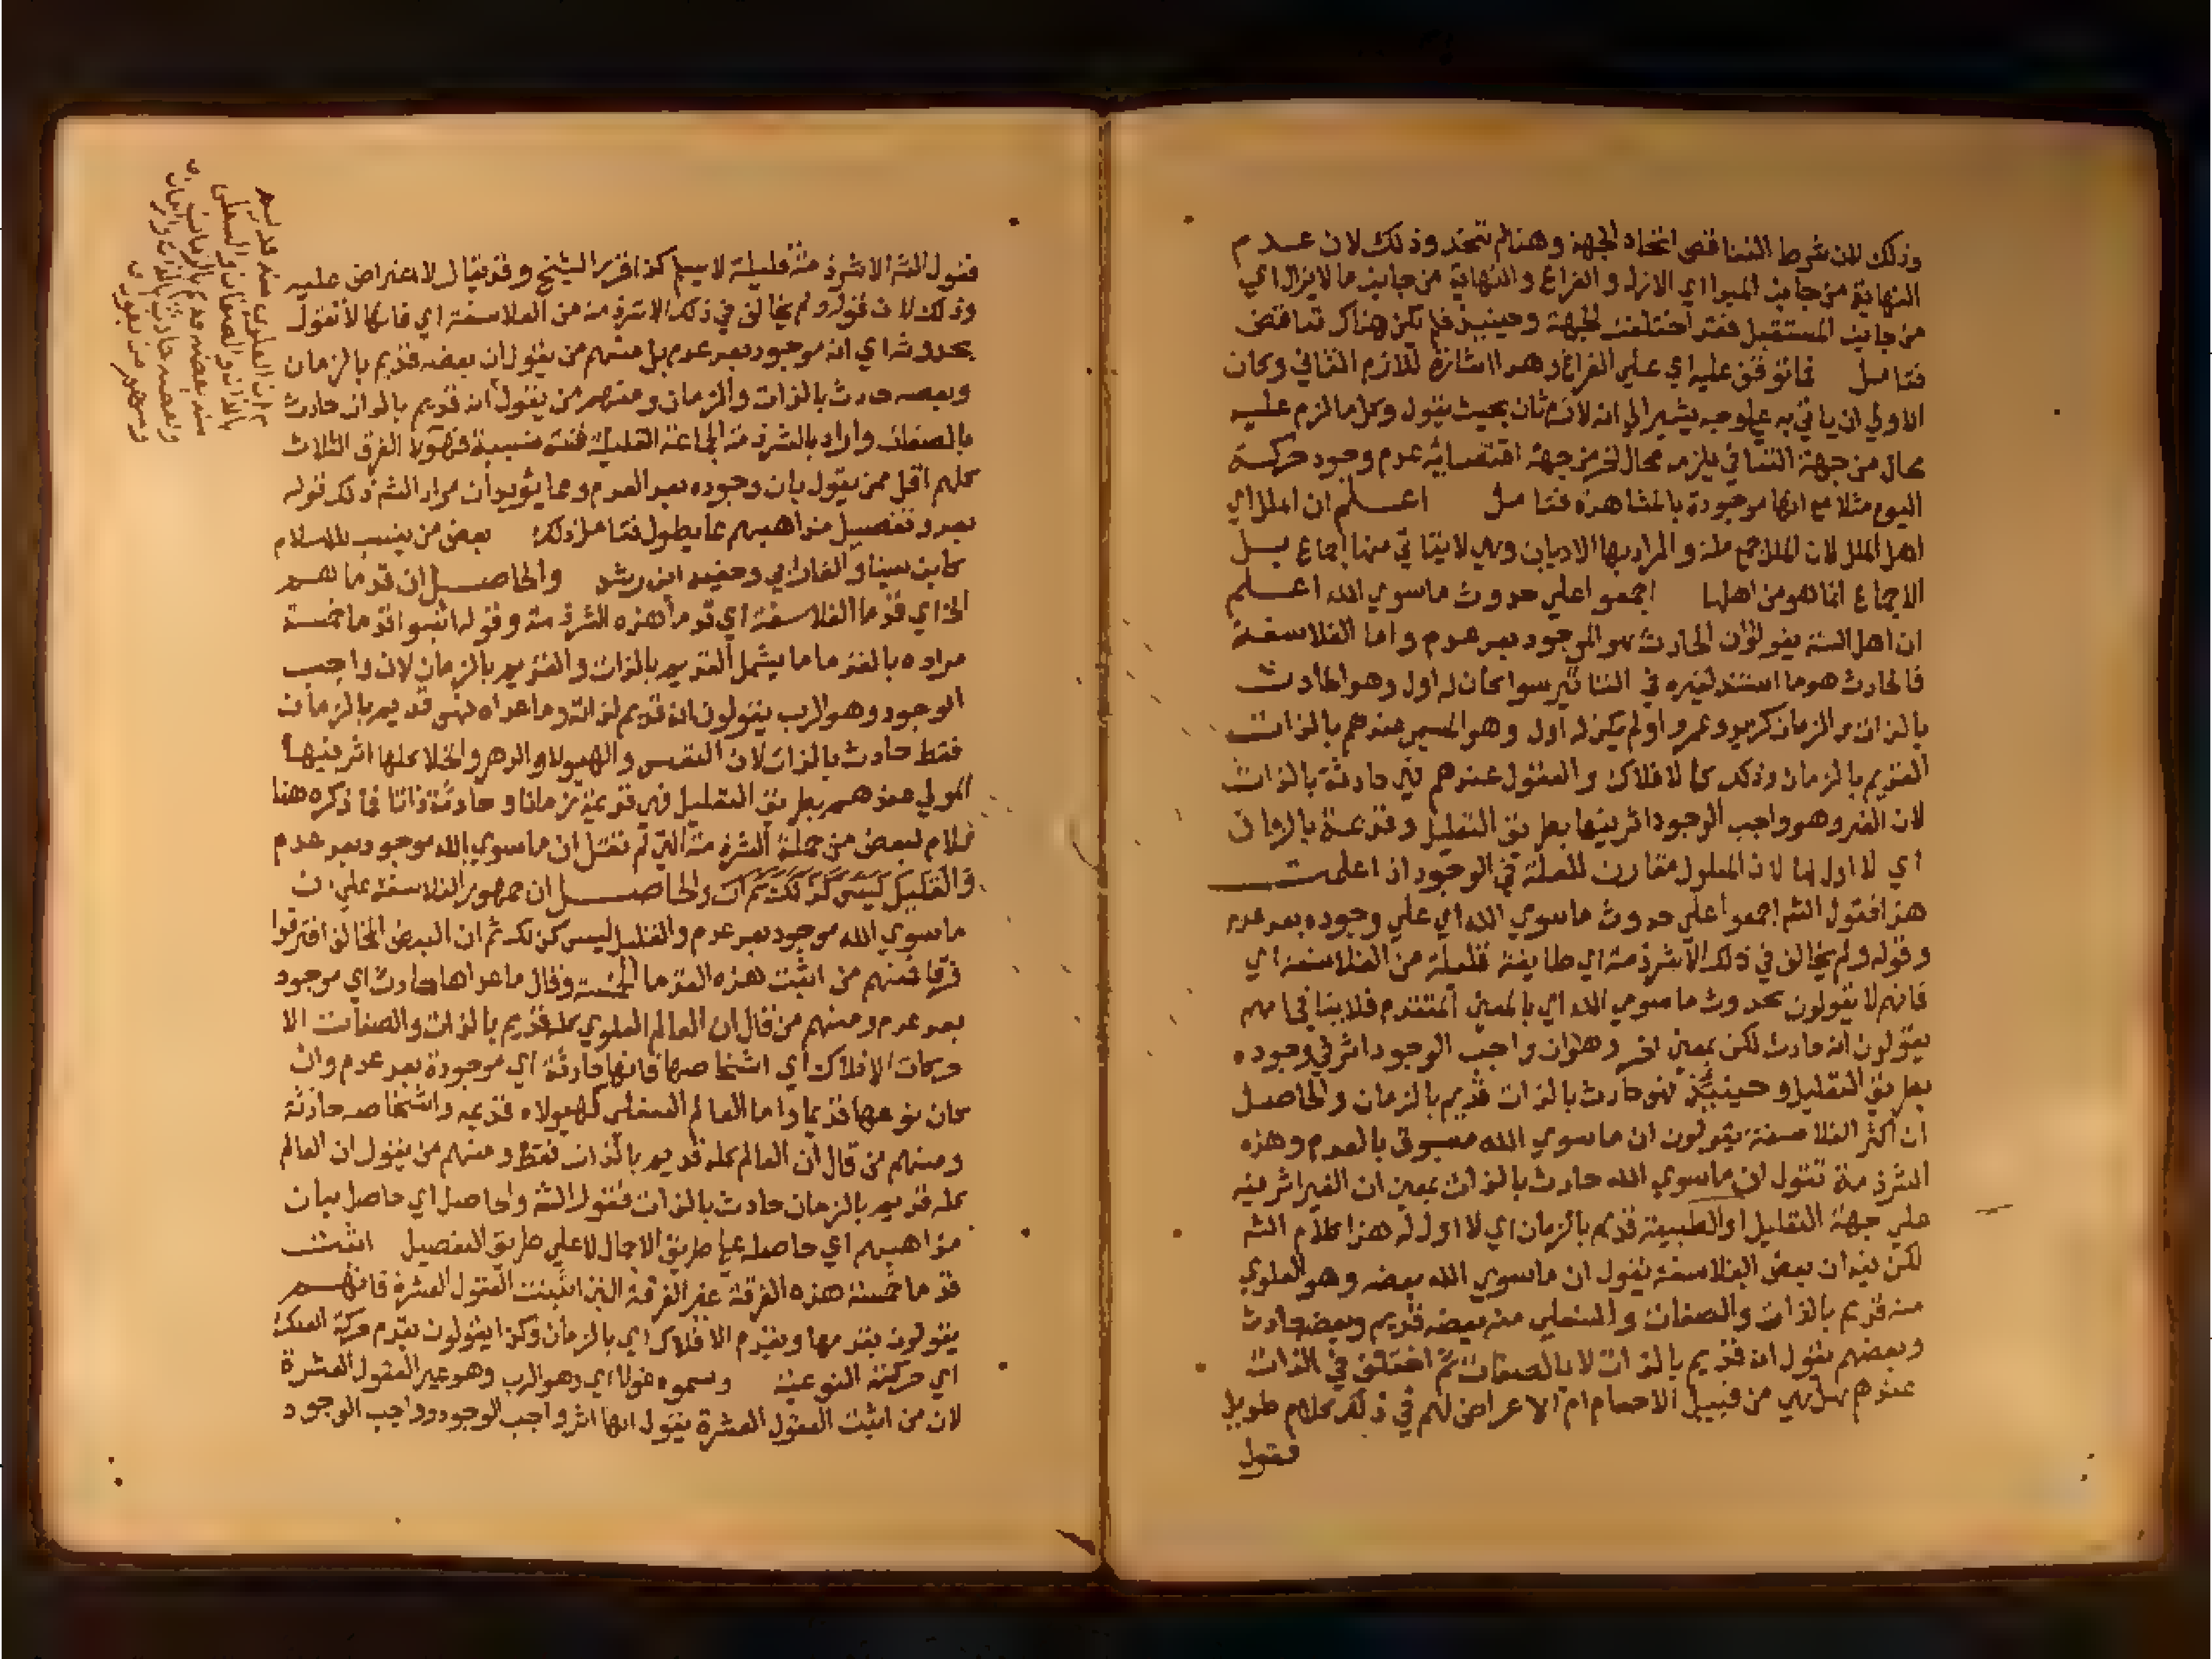 وذلك لان شرط التناقض اتحاد الجهة وهنا لم تتحد وذلك لان عدم
النهاية من جانب المبدا اي الازل والفراغ والنهاية من جانب ما لا يزال اي
من جانب المستقبل فقد اختلفت الجهة وحينيذ فلم يكن هناك تناقض
فتامل فما توقف عليه اي علي الفراغ وهو اشارة للازم الثاني وكان
الاولي ان ياتي به علي وجه يشير الي انه لازم ثان بحيث يقول وكل ما لزم عليه
محال من جهة التنافي يلزمه محال اخر من جهة اقتضائه عدم وجود حركة
اليوم مثلا مع انها موجودة بالمشاهدة فتامل اعلم ان الملل اي
اهل الملل لان الملل جمع ملة والمراد بها الاديان وهي لا يتاتي منها اجماع بل
الاجماع انما هو من اهلها اجمعوا علي حدوث ماسوي الله اعلم
ان اهل السنة يقولون الحادث هو الموجود بعد عدم واما الفلاسفة
فالحادث هو ما استند لغيره في التاثير سوا كان له اول وهو الحادث
بالذات والزمان كزيد وعمرو او لم يكن له اول وهو المسمي عندهم بالذات
القديم بالزمان وذلك كالافلاك والعقول عندهم فهي حادثة بالذات
لان الغير وهو واجب الوجود اثر فيها بطريق التعليل وقديمة بالزمان
اي لا اول لها لان المعلول مقارن للعلة في الوجود اذا علمت
هذا فقول الشم اجمعوا علي حدوث ماسوي الله اي علي وجوده بعد عدم
وقوله ولم يخالف في ذلك الا شرذمة اي طايفة قليلة من الفلاسفة اي
فانهم لا يقولون بحدوث ماسوي الله اي بالمعني المتقدم فلا ينافي انهم
يقولون انه حادث لكن بمعني اخر وهو ان واجب الوجود اثر في وجوده
بطريق التعليل وحينيذ فهو حادث بالذات قديم بالزمان والحاصل
ان اكثر الفلاسفة يقولون ان ماسوي الله مسبوق بالعدم وهذه
الشرذمة تقول ان ماسوي الله حادث بالذات بمعني ان الغير اثر فيه
علي جهة التعليل او الطبيعة قديم بالزمان اي لا اول له هذا كلام الشم
لكن فيه ان بعض الفلاسفة يقول ان ماسوي الله بعضه وهو العلوي
منه قديم بالذات والصفات والسفلي منه بعضه قديم وبعضه حادث
وبعضهم يقول انه قديم بالذات لا بالصفات ثم اختلف في الذات
عندهم هل هي من قبيل الاجسام ام الاعراض لهم في ذلك كلام طويل
فقول
فقول الشم الا شرذمة قليلة لا يسلم كذا قرر الشيخ وقد يقال لا اعتراض عليه
وذلك لان قوله ولم يخالف في ذلك الا شرذمة من الفلاسفة اي فانها لا تقول
بحدوثه اي انه موجود بعد عدم بل منهم من يقول ان بعضه قديم بالزمان
وبعضه حادث بالذات والزمان ومنهم من يقول انه قديم بالذات حادث
بالصفات واراد بالشرذمة الجماعة القليلة قلة نسبية فهولا الفرق الثلاث
كلهم اقل ممن يقول بان وجوده بعد العدم ومما يؤيد ان مراد الشم ذلك قوله
بعد وتفصيل مذاهبهم مما يطول فتامل ذلك بعض من ينسب للاسلام
كابن سينا والفارابي وحفيد ابن رشد والحاصل ان قدماهم
الخ اي قدما الفلاسفة اي قدما هذه الشرذمة وقوله اثبتوا قدما خمسة
مراده بالقدما ما يشمل القديم بالذات والقديم بالزمان لان واجب
الوجود وهو الرب يقولون انه قديم لذاته وما عداه فهي قديم بالزمان
فقط حادث بالذات لان النفس والهيولا والدهر والخلا كلها اثر فيها
المولي عندهم بطريق التعليل فهي قديمة زمانا وحادثة ذاتا فما ذكره هنا
كلام لبعض من جملة الشرذمة التي لم تقل ان ماسوي الله موجود بعد عدم
والقليل ليس كذلك والحاصل ان جمهور الفلاسفة علي ان
ماسوي الله موجود بعد عدم والقليل ليس كذلك ثم ان البعض المخالف افترقوا
فرقا فمنهم من اثبت هذه القدما الخمسة وقال ما عداها حادث اي موجود
بعد عدم ومنهم من قال ان العالم العلوي كله قديم بالذات والصفات الا
حركات الافلاك اي اشخاصها فانها حادثة اي موجودة بعد عدم وان
كان نوعها قديما واما العالم السفلي فهيولاه قديمه واشخاصه حادثة
ومنهم من قال ان العالم كله قديم بالذات فقط ومنهم من يقول ان العالم
كله قديم بالزمان حادث بالذات فقول الشم والحاصل اي حاصل بيان
مذاهبهم اي حاصله علي طريق الاجمال لا علي طريق التفصيل اثبتت
قدما خمسة هذه الفرقة غير الفرقة الذين اثبتت العقول العشرة فانهم
يقولون بقدمها وبقدم الافلاك اي بالزمان وكذا يقولون بقدم حركة الفلك
اي حركته النوعية وسموه اي وهو الرب وهو غير العقول العشرة
لان من اثبت العقول العشرة يقول انها اثر واجب الوجود وواجب الوجود